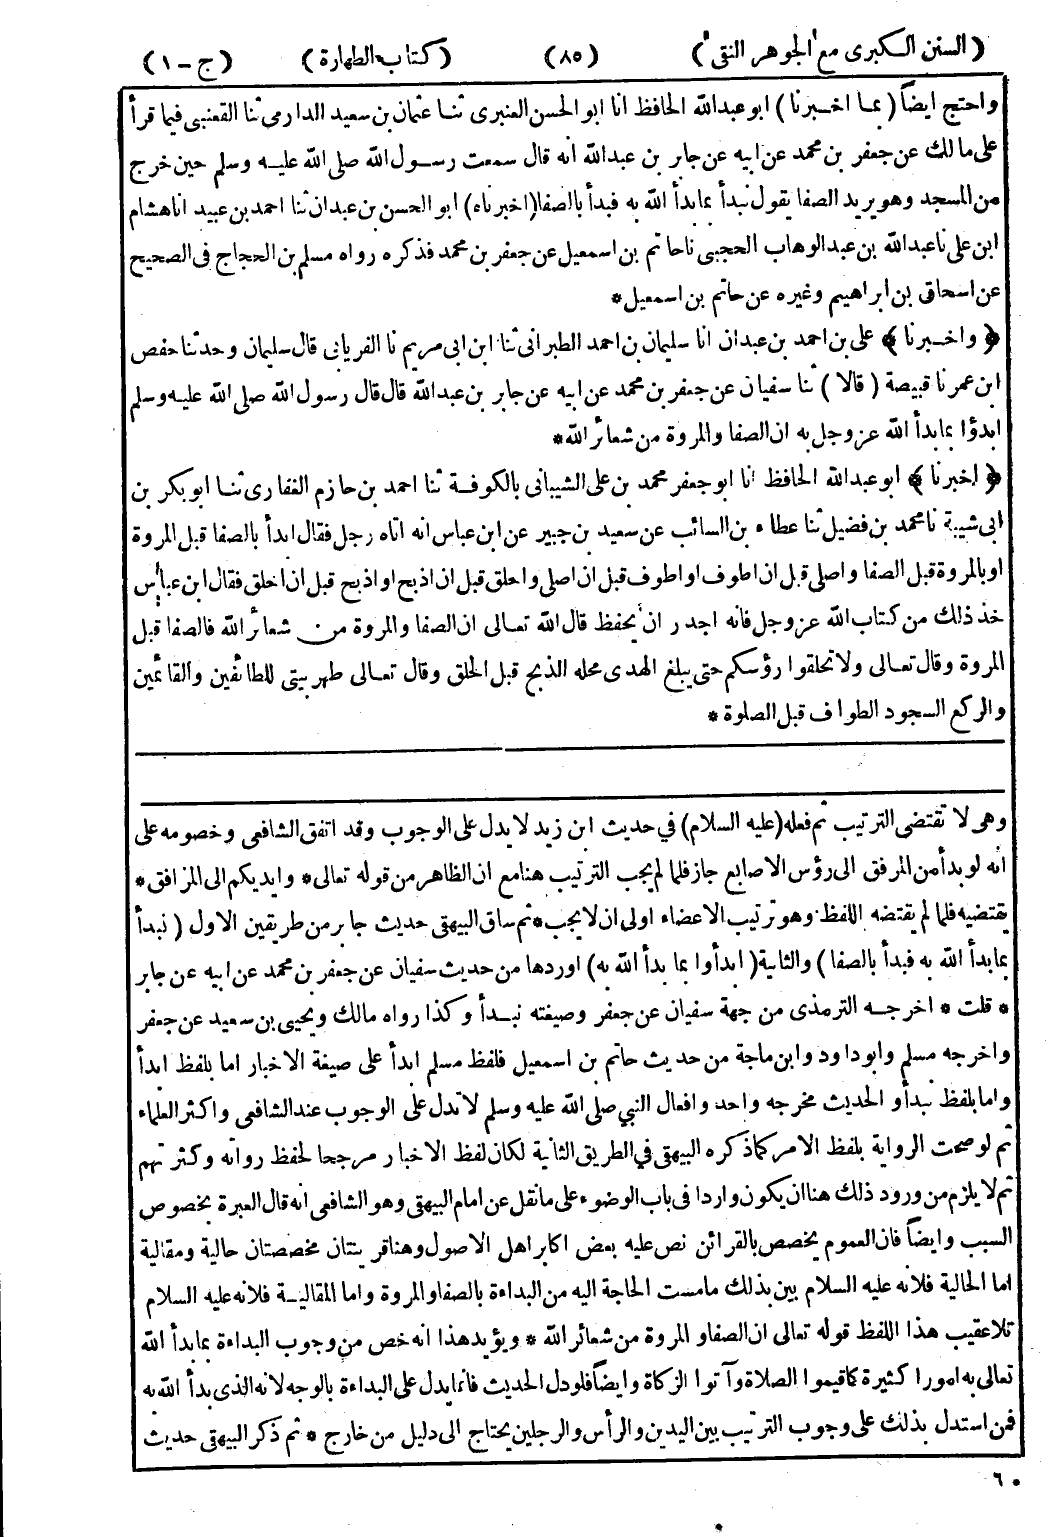 ( السنن الكبرى مع الجوهر النقى ) (٨٥) ( كتاب الطهارة ) ( ج - ١ )
واحتج ايضاً ( بما اخبرنا ) ابو عبد الله الحافظ انا ابو الحسن العنبرى ثنا عثمان بن سعيد الدارمى ثنا القعنبى فيما قرأ
على مالك عن جعفر بن محمد عن ابيه عن جابر بن عبد الله انه قال سمعت رسول الله صلى الله عليه وسلم حين خرج
من المسجد وهو يريد الصفا يقول نبدأ بما بدأ الله به فبدأ بالصفا (اخبرناه) ابو الحسن بن عبدان ثنا احمد بن عبيد انا هشام
ابن على نا عبد الله بن عبد الوهاب الحجبى نا حاتم بن اسمعيل عن جعفر بن محمد فذكره رواه مسلم بن الحجاج فى الصحيح
عن اسحاق بن ابراهيم وغيره عن حاتم بن اسمعيل *
﴿ واخبرنا ﴾ على بن احمد بن عبدان انا سليمان بن احمد الطبرانى ثنا ابن ابى مريم نا الفريابى قال سليمان وحدثنا حفص
ابن عمر نا قبيصة ( قالا ) ثنا سفيان عن جعفر بن محمد عن ابيه عن جابر بن عبد الله قال قال رسول الله صلى الله عليه وسلم
ابدؤا بما بدأ الله عز وجل به ان الصفا والمروة من شعائر الله *
﴿ اخبرنا ﴾ ابو عبد الله الحافظ انا ابو جعفر محمد بن على الشيبانى بالكوفة ثنا احمد بن حازم الغفارى ثنا ابو بكر بن
ابى شيبة نا محمد بن فضيل ثنا عطاء بن السائب عن سعيد بن جبير عن ابن عباس انه اتاه رجل فقال ابدأ بالصفا قبل المروة
او بالمروة قبل الصفا واصلى قبل ان اطوف او اطوف قبل ان اصلى واحلق قبل ان اذبح او اذبح قبل ان احلق فقال ابن عباس
خذ ذلك من كتاب الله عز وجل فانه اجدر ان يحفظ قال الله تعالى ان الصفا والمروة من شعائر الله فالصفا قبل
المروة وقال تعالى ولا تحلقوا رؤسكم حتى يبلغ الهدى محله الذبح قبل الحلق وقال تعالى طهر بيتى للطائفين والقائمين
والركع السجود الطواف قبل الصلوة *
وهى لا تقتضى الترتيب ثم فعله (عليه السلام) في حديث ابن زيد لا يدل على الوجوب وقد اتفق الشافعى وخصومه على
انه لو بدأ من المرفق الى رؤس الاصابع جاز فلما لم يجب الترتيب هنا مع ان الظاهر من قوله تعالى * وايديكم الى المرافق *
يقتضيه فلما لم يقتضه اللفظ وهو ترتيب الاعضاء اولى ان لا يجب * ثم ساق البيهقى حديث جابر من طريقين الاول ( نبدأ
بما بدأ الله به فبدأ بالصفا ) والثانية ( ابدأوا بما بدأ الله به ) اوردها من حديث سفيان عن جعفر بن محمد عن ابيه عن جابر
* قلت * اخرجه الترمذى من جهة سفيان عن جعفر وصيغته نبدأ وكذا رواه مالك ويحيى بن سعيد عن جعفر
واخرجه مسلم وابو داود وابن ماجة من حديث حاتم بن اسمعيل فلفظ مسلم ابدأ على صيغة الاخبار اما بلفظ ابدأ
واما بلفظ نبدأ و الحديث مخرجه واحد وافعال النبي صلى الله عليه وسلم لا تدل على الوجوب عند الشافعى واكثر العلماء
ثم لو صحت الرواية بلفظ الامر كما ذكره البيهقى في الطريق الثانية لكان لفظ الاخبار مرجحا لحفظ رواته وكثرتهم
ثم لا يلزم من ورود ذلك هنا ان يكون واردا فى باب الوضوء على ما نقل عن امام البيهقى وهو الشافعى انه قال العبرة بخصوص
السبب وايضاً فان العموم يخصص بالقرائن نص عليه بعض اكابر اهل الاصول وهنا قرينتان مخصصتان حالية ومقالية
اما الحالية فلانه عليه السلام بين بذلك ما مست الحاجة اليه من البداءة بالصفا والمروة واما المقالية فلانه عليه السلام
تلا عقيب هذا اللفظ قوله تعالى ان الصفا و المروة من شعائر الله * ويؤيد هذا انه خص من وجوب البداءة بما بدأ الله
تعالى به امورا كثيرة كاقيموا الصلاة وآتوا الزكاة وايضاً فلو دل الحديث فانما يدل على البداءة بالوجه لانه الذى بدأ الله به
فمن استدل بذلك على وجوب الترتيب بين اليدين والرأس والرجلين يحتاج الى دليل من خارج * ثم ذكر البيهقى حديث
٦٠